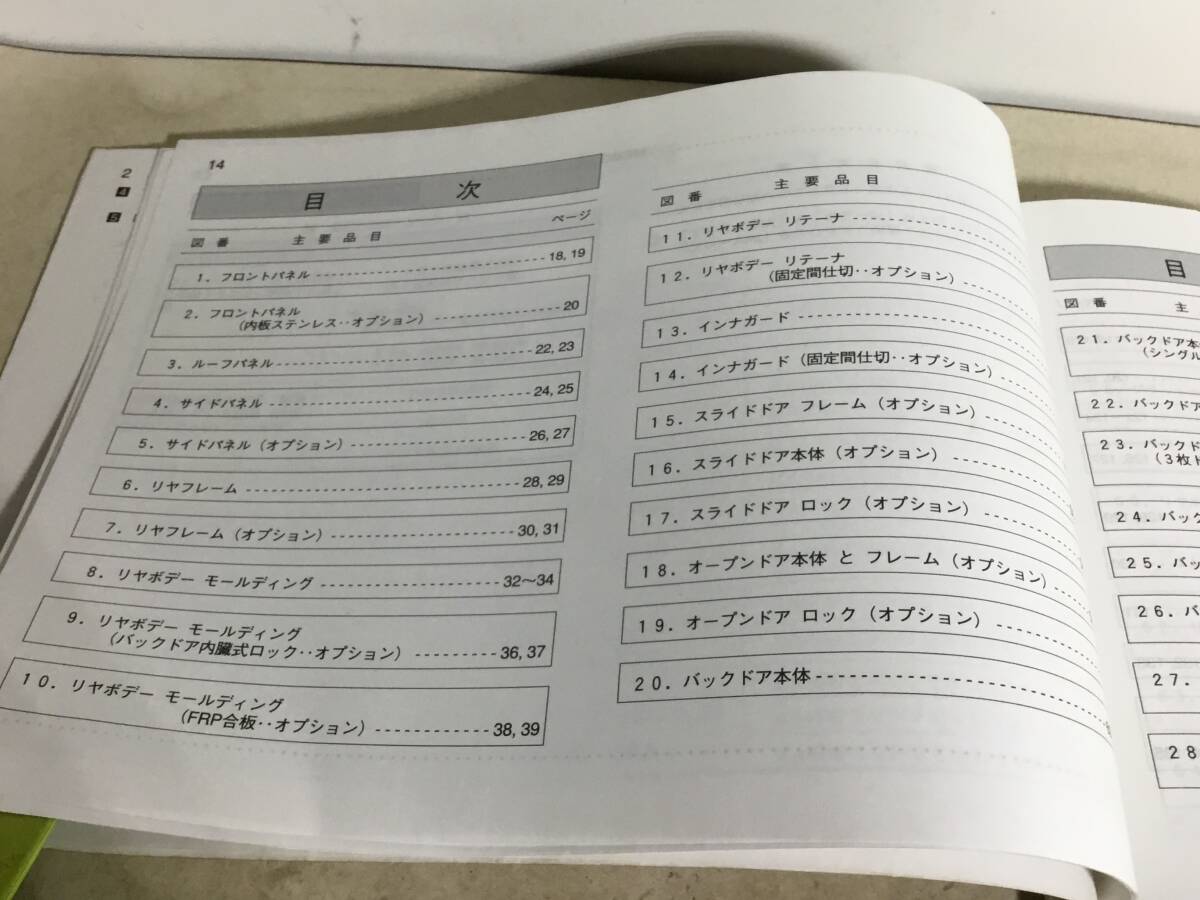 2
4
5
14
目 次
ページ
図番 主要品目
1. フロントパネル 18, 19
2. フロントパネル
(内板ステンレス‥オプション) 20
3. ルーフパネル 22, 23
4. サイドパネル 24, 25
5. サイドパネル (オプション) 26, 27
6. リヤフレーム 28, 29
7. リヤフレーム (オプション) 30, 31
8. リヤボデー モールディング 32〜34
9. リヤボデー モールディング
(バックドア内臓式ロック‥オプション) 36, 37
10. リヤボデー モールディング
(FRP合板‥オプション) 38, 39
図番 主要品目
11. リヤボデー リテーナ
12. リヤボデー リテーナ
(固定間仕切‥オプション)
13. インナガード
14. インナガード (固定間仕切‥オプション)
15. スライドドア フレーム (オプション)
16. スライドドア本体 (オプション)
17. スライドドア ロック (オプション)
18. オープンドア本体 と フレーム (オプション)
19. オープンドア ロック (オプション)
20. バックドア本体
目
図番 主
21. バックドア本
(シングル
22. バックドア
23. バックド
(3枚
24. バック
25. バッ
26. バ
27.
28